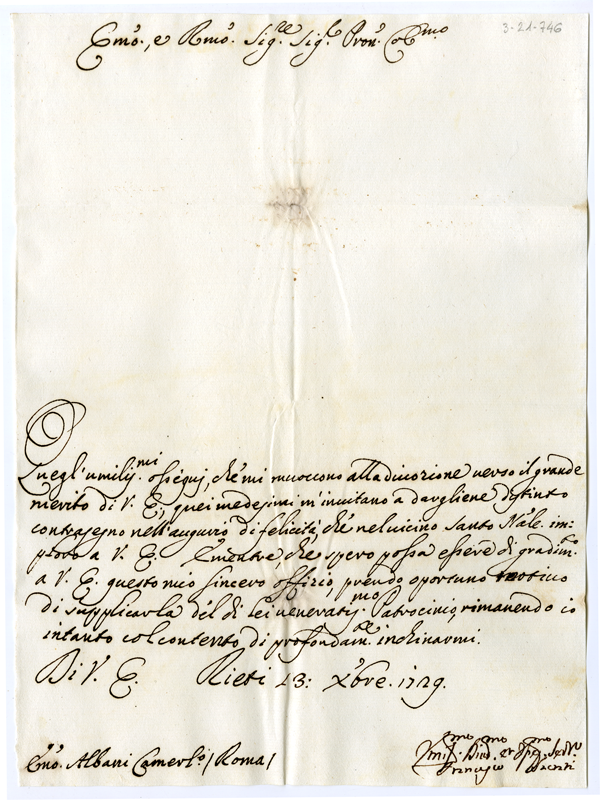 3-21-746
Emõ., e Rmõ. Sig.re Sig.re Pron̄. Col̃mo
Quegl'umiliss.mi ossequj, chè mi muovono alla divozione verso il grande
merito di V. E., quei medesimi m'invitano a dargliene distinto
contrasegno nell'augurio di felicità, chè nel vicino Santo Nãle. im=
ploro a V. E. E mentre, chè spero possa essere di gradim.to
a V. E. questo mio sincero offizio, prendo oportuno motivo
di supplicarla del di lei veneratis.mo Patrocinio, rimanendo io
intanto col contento di profondam.te inchinarmi.
Di V. E. Rieti 23: Xbre. 1729.
Emõ. Albani Camerl.o / Roma /
Umil.mo Div.mo et Obb.mo Ser.re
Francesco